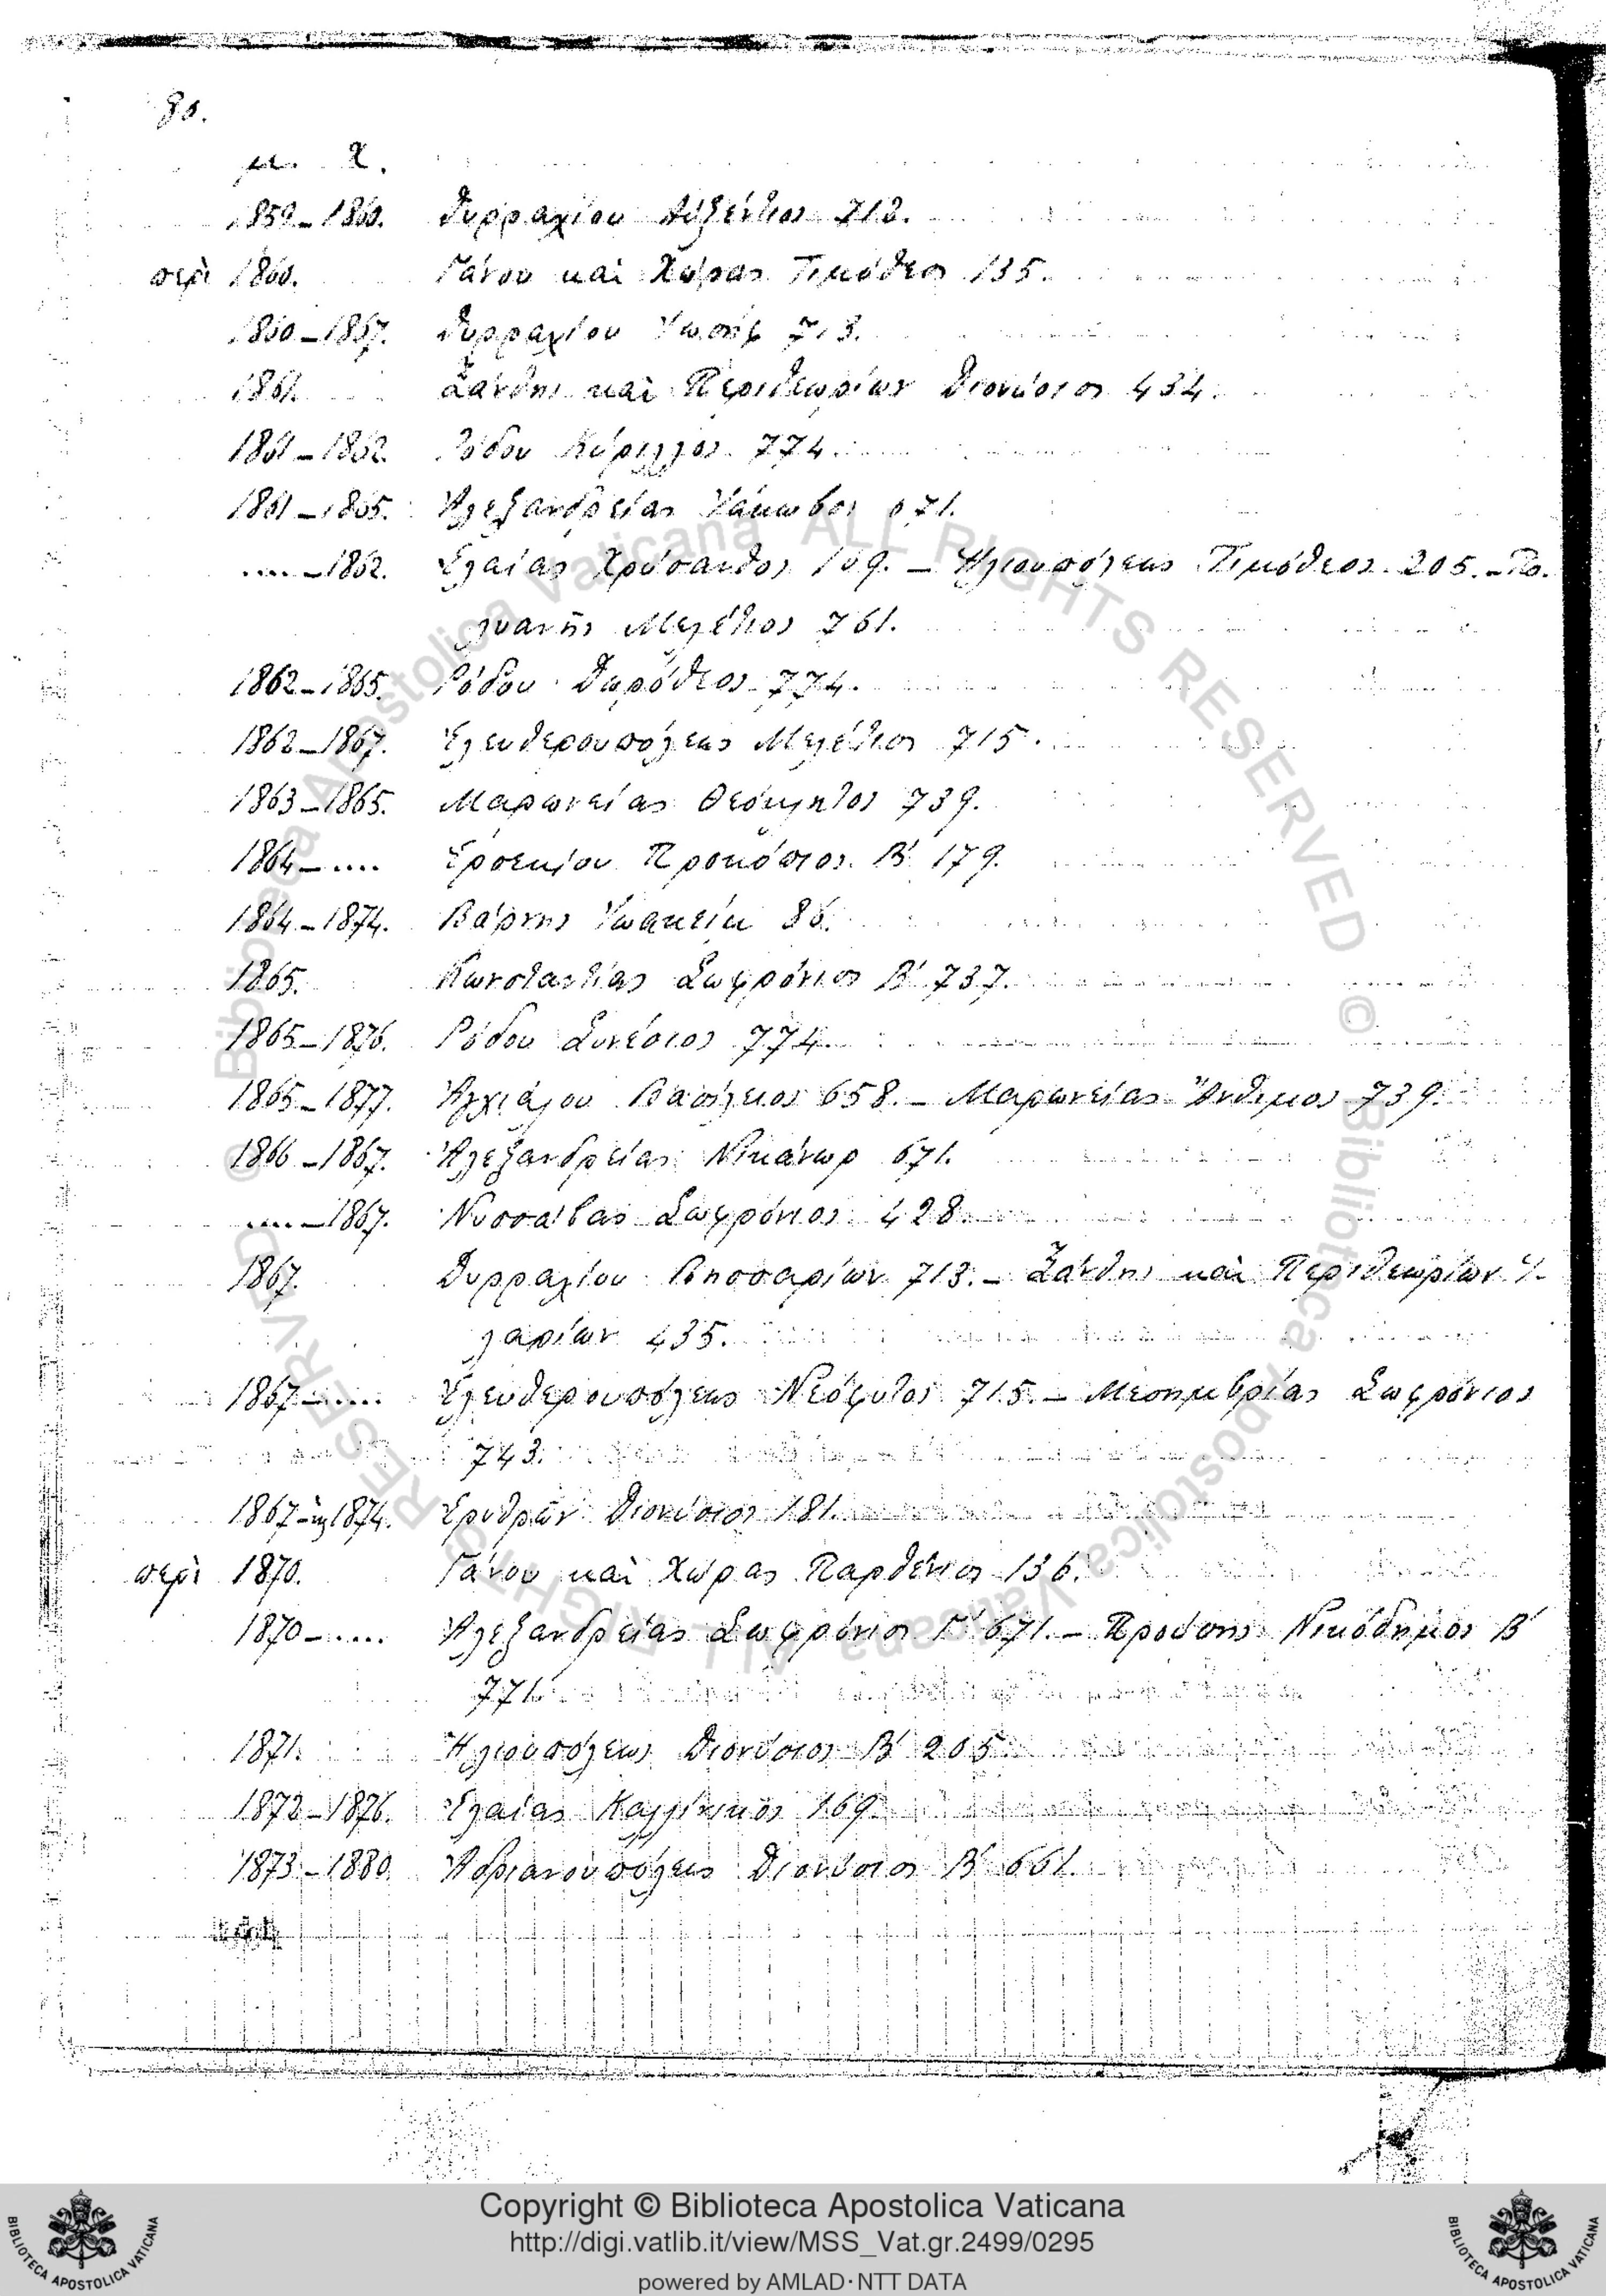 80.
μ. Χ.
1859 – 1860. Δυρραχίου Αὐξέντιος 713.
περὶ 1860. Γάνου καὶ Χώρας Τιμόθεος 135.
1860 – 1867. Δυρραχίου Ἰωσὴφ 713.
1861. Ξάνθης καὶ Περιθεωρίων Διονύσιος 434.
1861 – 1862. Ῥόδου Κύριλλος 774.
1861 – 1865. Ἀλεξανδρείας Ἰάκωβος 671.
.... – 1862. Ἐλαίας Χρύσανθος 169. – Ἡλιουπόλεως Τιμόθεος 205. – Πο-
λυανῆς Μελέτιος 761.
1862 – 1865. Ῥόδου Δωρόθεος 774.
1862 – 1867. Ἐλευθερουπόλεως Μελέτιος 715.
1863 – 1865. Μαρωνείας Θεόκλητος 739.
1864 – .... Ἐρσεκίου Προκόπιος Β΄ 179.
1864 – 1874. Βάρνης Ἰωακεὶμ 86.
1865. Κωνσταντίας Σωφρόνιος Β΄ 737.
1865 – 1876. Ῥόδου Συνέσιος 774.
1865 – 1877. Ἀγχιάλου Βασίλειος 658. – Μαρωνείας Ἄνθιμος 739.
1866 – 1867. Ἀλεξανδρείας Νικάνωρ 671.
.... – 1867. Νυσσάβας Σωφρόνιος 428.
1867. Δυρραχίου Βησσαρίων 713. – Ξάνθης καὶ Περιθεωρίων Ἱ-
λαρίων 435.
1867 – .... Ἐλευθερουπόλεως Νεόφυτος 715. – Μεσημβρίας Σωφρόνιος
743.
1867 – 1874. Ἐρυθρῶν Διονύσιος 181.
περὶ 1870. Γάνου καὶ Χώρας Παρθένιος 136.
1870 – .... Ἀλεξανδρείας Σωφρόνιος Γ΄ 671. – Προύσης Νικόδημος Β΄
771.
1871. Ἡλιουπόλεως Διονύσιος Β΄ 205.
1872 – 1876. Ἐλαίας Καλλίνικος 169.
1873 – 1880. Ἀδριανουπόλεως Διονύσιος Β΄ 661.
Copyright © Biblioteca Apostolica Vaticana
http://digi.vatlib.it/view/MSS_Vat.gr.2499/0295
powered by AMLAD·NTT DATA